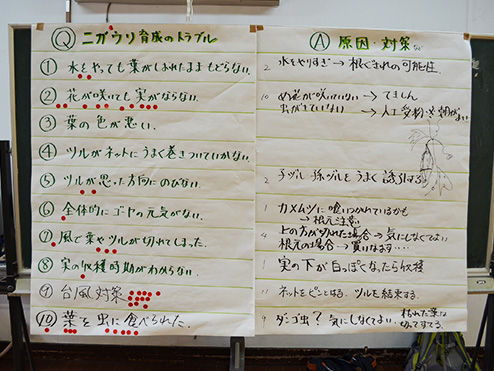 Q ニガウリ育成のトラブル
① 水をやっても葉がしおれたままもどらない。
② 花が咲いても、実がならない。
③ 葉の色が悪い。
④ ツルがネットにうまく巻きついていかない。
⑤ ツルが思った方向にのびない。
⑥ 全体的にゴーヤの元気がない。
⑦ 風で葉やツルが切れてしまった。
⑧ 実の収穫時期がわからない。
⑨ 台風対策
⑩ 葉を虫に食べられた。
A 原因・対策
2 水をやりすぎ→根ぐされの可能性
10 め花が咲いていない→てきしん
虫がきていない→人工受粉
2 子ヅル孫ヅルをうまく誘引する
1 カメムシに喰いつかれているかも
→根元注意
4 上の方が切れた場合→気にしなくてよい
根元の場合→買いなます
1 実の下が白っぽくなったら収穫
11 ネットをピンとはる。ツルを結束する。
9 ダンゴ虫?気にしなくてよい。
枯れた葉は
切ってすてる。